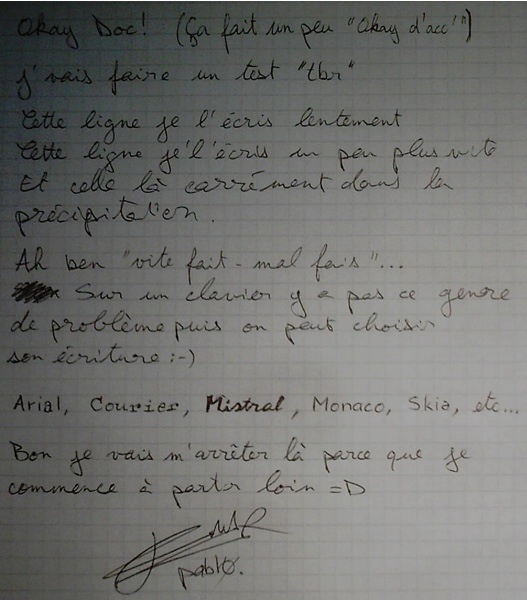 Okay Doc! (Ça fait un peu "Okay d'acc'")
j'vais faire un test "tbr"
Cette ligne je l'écris lentement
Cette ligne je l'écris un peu plus vite
Et celle là carrément dans la
précipitat'en.
Ah ben "vite fait - mal fais"...
Sur un clavier y a pas ce genre
de problème puis on peut choisir
son écriture :-)
Arial, Courier, Mistral, Monaco, Skia, etc...
Bon je vais m'arrêter là parce que je
commence à partir loin =D
pablo.